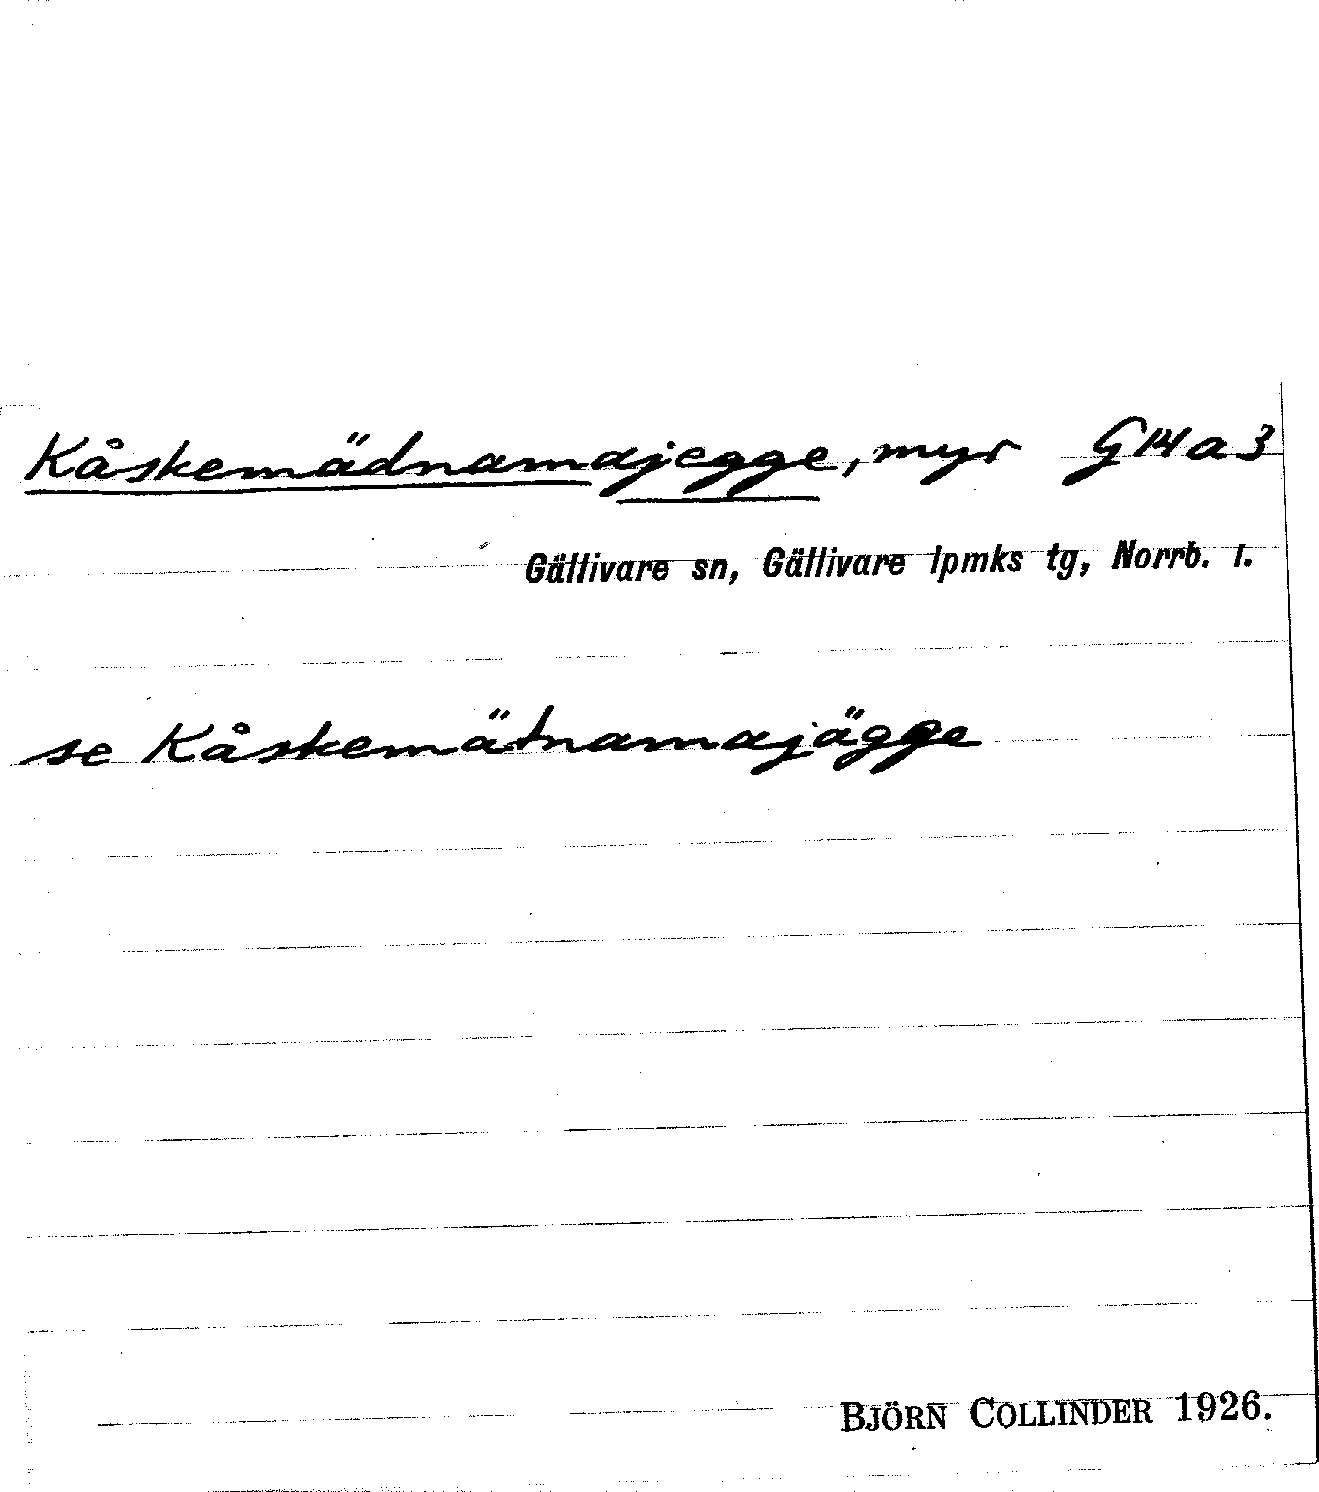 Kåskemädnamajegge, myr G14a3
Gällivare sn, Gällivare lpmks tg, Norrb. l.
se Kåskemätnamajägge
BJÖRN COLLINDER 1926.